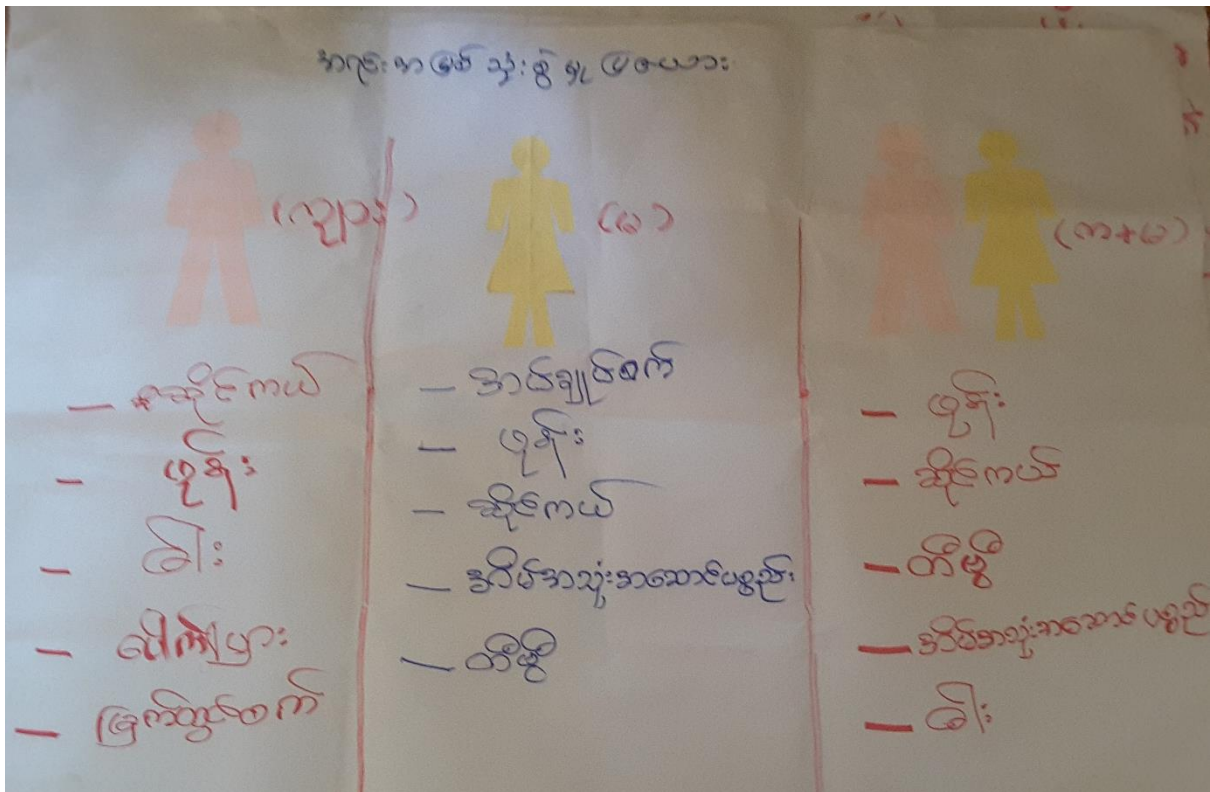 အရင်းအမြစ် သုံးစွဲမှု ပြဇယား
(ကျား)
(မ)
(ကာ+မ)
— ဆိုင်ကယ်
— ဖုန်း
— ခါး
— ပေါက်ပြား
— မြက်တွင်စက်
— အပ်ချုပ်စက်
— ဖုန်း
— ဆိုင်ကယ်
— အိမ်အသုံးအဆောင်ပစ္စည်း
— တီဗွီ
— ဖုန်း
— ဆိုင်ကယ်
— တီဗွီ
— အိမ်အသုံးအဆောင်ပစ္စည်
— ခါး